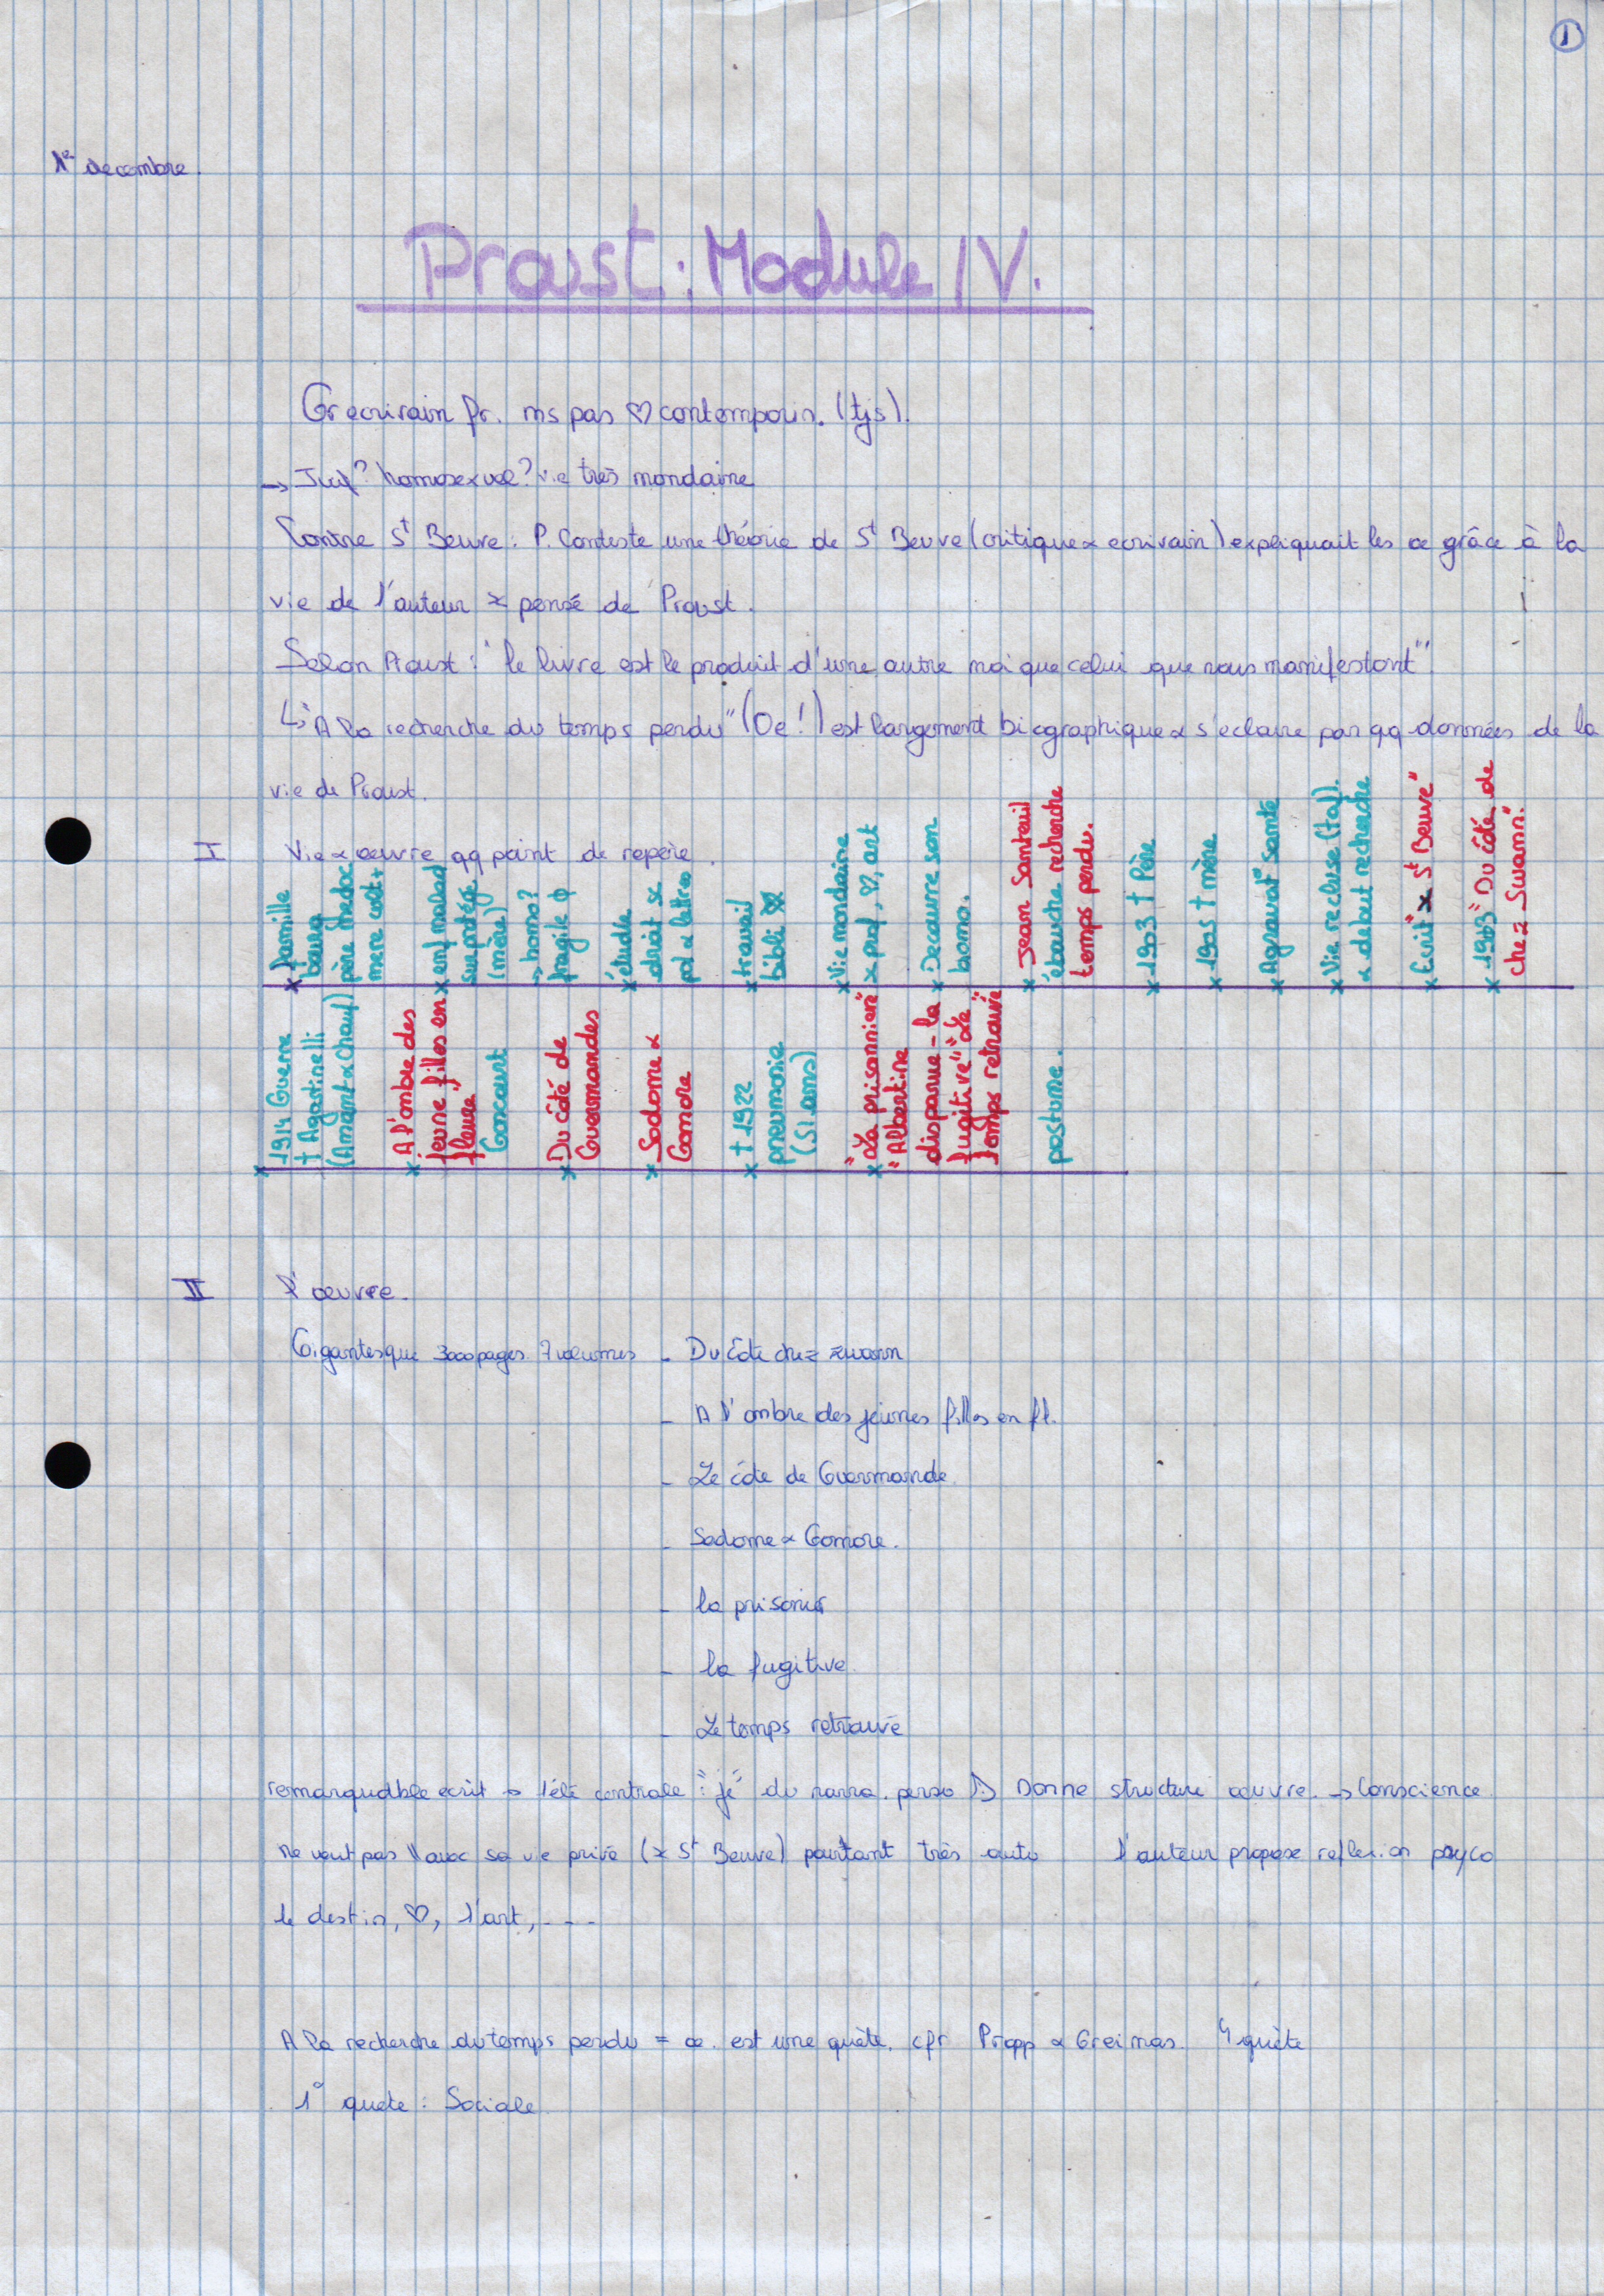 1
1er decembre.
Proust : Module IV.
Gr ecrivain fr. ms pas ♡ contemporis. (tjs).
→ Juif? homosexuel? vie très mondaine
Contre St Beuve : P. Conteste une théorie de St Beuve (critique & ecrivain) expliquait les œ grâce à la
vie de l'auteur ≠ pensé de Proust.
Selon Proust : "le livre est le produit d'une autre moi que celui que nous manifestont"!
↳ "A la recherche du temps perdu" (Oe!) est largement biographique & s'eclaire par qq données de la
vie de Proust.
I Vie & œuvre qq point de repère.
x famille
bourg
père medoc
mere cult+
x enf malad
surprotége
(mère)
→ homo?
fragile φ
x étude
droit sc
pol & lettres
x travail
bibli
x Vie mondaine
x prof, ♡, art
x Decouvre son
homo.
x Jean Santeuil
ébauche recherche
temps perdu.
x 1903 † Père
x 1905 † mère
x Agravat° santé
x Vie recluse (taf).
& debut recherche
x Ecrit "x St Beuve"
x 1913 "Du côté de
chez Swann".
x 1914 Guerre
† Agostinelli
(Amant & chauf)
x A l'ombre des
jeune filles en
fleurs
Goncourt
x Du côté de
Guermandes
x Sodome &
Gomore
x † 1922
pneumonie
(51 ans)
x "La prisonnière"
"Albertine
disparue - la
fugitive" "Le
temps retrouvé"
postume.
II l'œuvre.
Gigantesque 3000 pages 7 volumes - Du côte chez zwann
- A l'ombre des jeunes filles en fl.
- Le côte de Guermande.
- Sodome & Gomore.
- la prisonier
- la fugitive.
- Le temps retrouvé
remarquablble ecrit → l'élé centrale : "je" du narra. perso Donne structure œuvre. → Conscience
ne veut pas // avec sa vie privé (x St Beuve) pourtant très auto l'auteur propose reflexion psyco
le destin, ♡, l'art, - - -
A la recherche du temps perdu = œ. est une quête. cfr Propp & Greimas. 4 quête
1° quete : Sociale